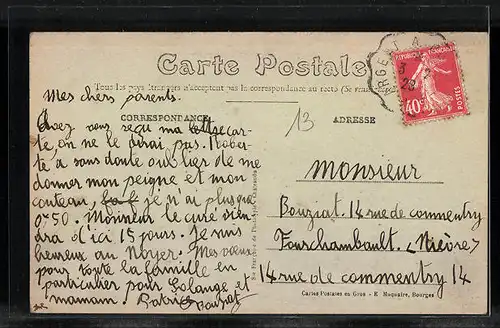 Carte Postale
Tous les pays étrangers n'acceptent pas la correspondance au recto (Se
CORRESPONDANCE
ADRESSE
13
Mes chers parents.
Avez vous reçu ma lettre car
te, on ne le dirai pas. Rober
te a sous doute oublier de me
donner mon peigne et mon
couteau, je n'ai plus que
0f50. Monsieur le curé vien
dra d'ici 15 jours. Je suis
heureux au Noyer. Mes vœux
pour toute la famille en
particulier pour Solange et
maman. Patrice
Bouziat
Monsieur
Bouziat. 14 rue de commentry
Fourchambault. (Nièvre)
14 rue de commentry 14
Cartes Postales en Gros - E. Maquaire, Bourges
ARGENT A
RÉPUBLIQUE FRANÇAISE
40c
POSTES